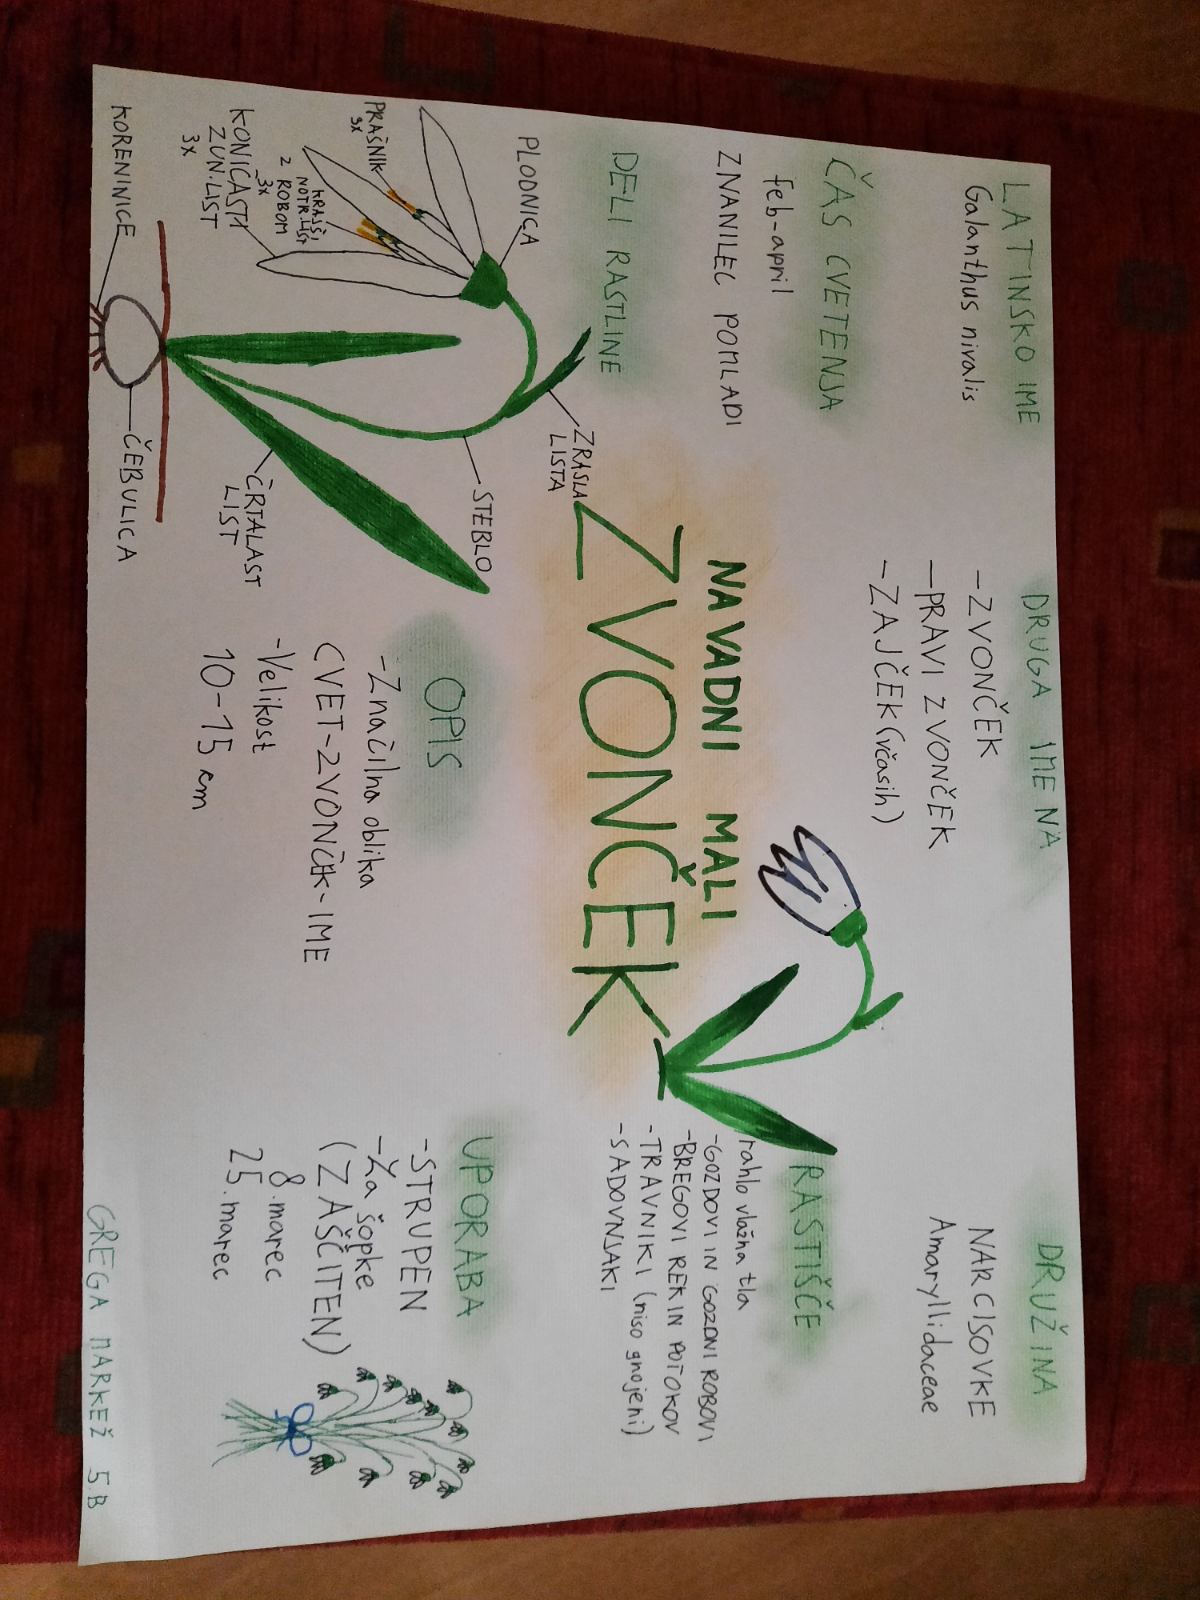 LATINSKO IME
Galanthus nivalis
ČAS CVETENJA
feb-april
ZNANILEC POMLADI
DRUGA IMENA
-ZVONČEK
-PRAVI ZVONČEK
-ZAJČEK (včasih)
DRUŽINA
NARCISOVKE
Amaryllidaceae
NAVADNI MALI
ZVONČEK
RASTIŠČE
rahlo vlažna tla
-GOZDOVI IN GOZDNI ROBOVI
-BREGOVI REK IN POTOKOV
-TRAVNIKI (niso gnojeni)
-SADOVNJAKI
DELI RASTLINE
PLODNICA
PRAŠNIK
3x
KRAJŠI
NOTR. LIST
Z ROBOM
3x
KONIČASTI
ZUN. LIST
3x
KORENINICE
ZRASLA
LISTA
STEBLO
ČRTALAST
LIST
ČEBULICA
OPIS
-Značilna oblika
CVET-ZVONČEK-IME
-Velikost
10-15 cm
UPORABA
-STRUPEN
-Za šopke
(ZAŠČITEN)
8. marec
25. marec
GREGA MARKEŽ 5.B